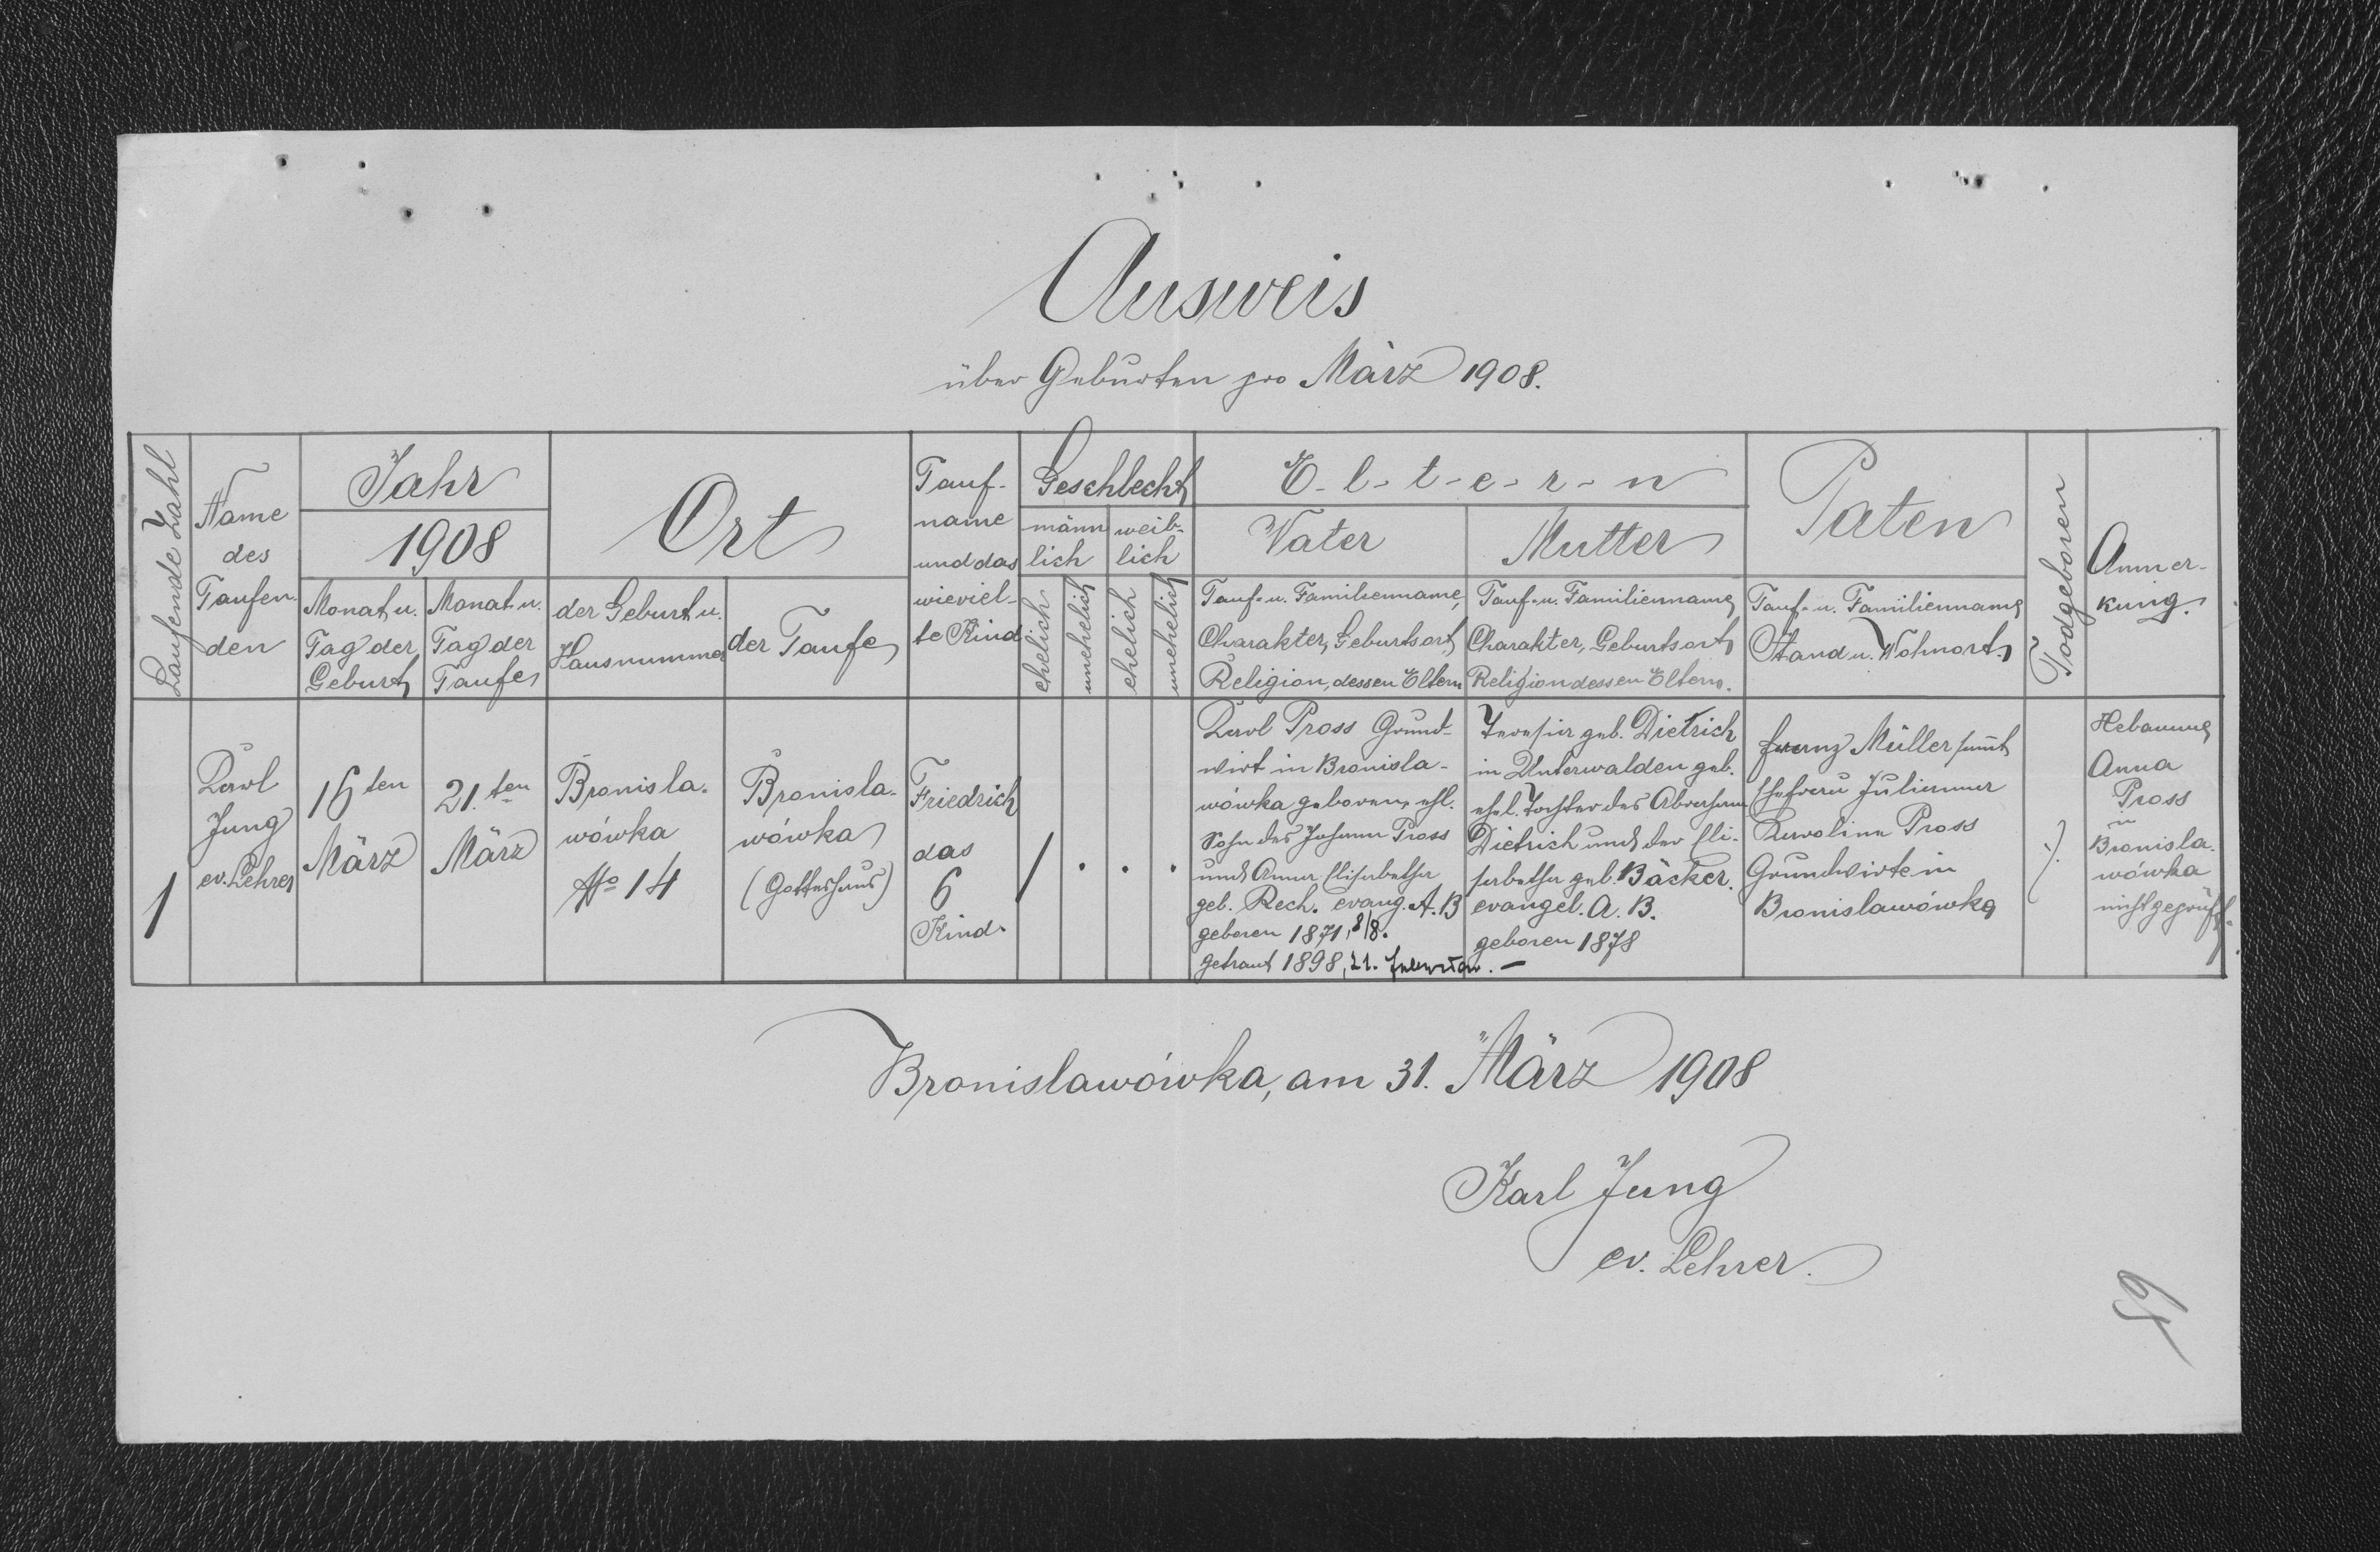 Ausweis
über Geburten pro März 1908.
Laufende Zahl
Name
des
Taufen-
den
Jahr
1908
Monat u.
Tag der
Geburt
Monat u.
Tag der
Taufe
Ort
der Geburt u.
Hausnummer
der Taufe
Tauf-
name
und das
wieviel-
te Kind
Geschlecht
männ
lich
weib-
lich
ehelich
unehelich
ehelich
unehelich
E-l-t-e-r-n
Vater
Tauf- u. Familienname,
Charakter, Geburtsort,
Religion, dessen Eltern
Mutter
Tauf- u. Familienname
Charakter, Geburtsort
Religion dessen Eltern.
Paten
Tauf- u. Familienname
Stand u. Wohnort.
Todgeboren
Anmer-
kung.
1
Karl
Jung
ev. Lehrer
16ten
März
21.ten
März
Bronisla-
wówka
No 14
Bronisla-
wówka
(Gotteshaus)
Friedrich
das
6
Kind.
1
.
.
.
Karl Pross Grund-
wirt in Bronisla-
wówka geboren, ehl.
Sohn des Johann Pross
und Anna Elisabetha
geb. Rech. evang. A. B
geboren 1871, 8/8.
getraut 1898, 21. Februar. —
Theresia geb. Dietrich
in Unterwalden geb.
ehel. Tochter des Abraham
Dietrich und der Eli-
sabetha geb. Bäcker.
evangel. A. B.
geboren 1878
Franz Müller samt
Ehefrau Julianna
Karolina Pross
Grundwirte in
Bronislawówka
./.
Hebamme
Anna
Pross
in
Bronisla-
wówka
nicht geprüft.
Bronislawówka, am 31. März 1908
Karl Jung
ev. Lehrer.